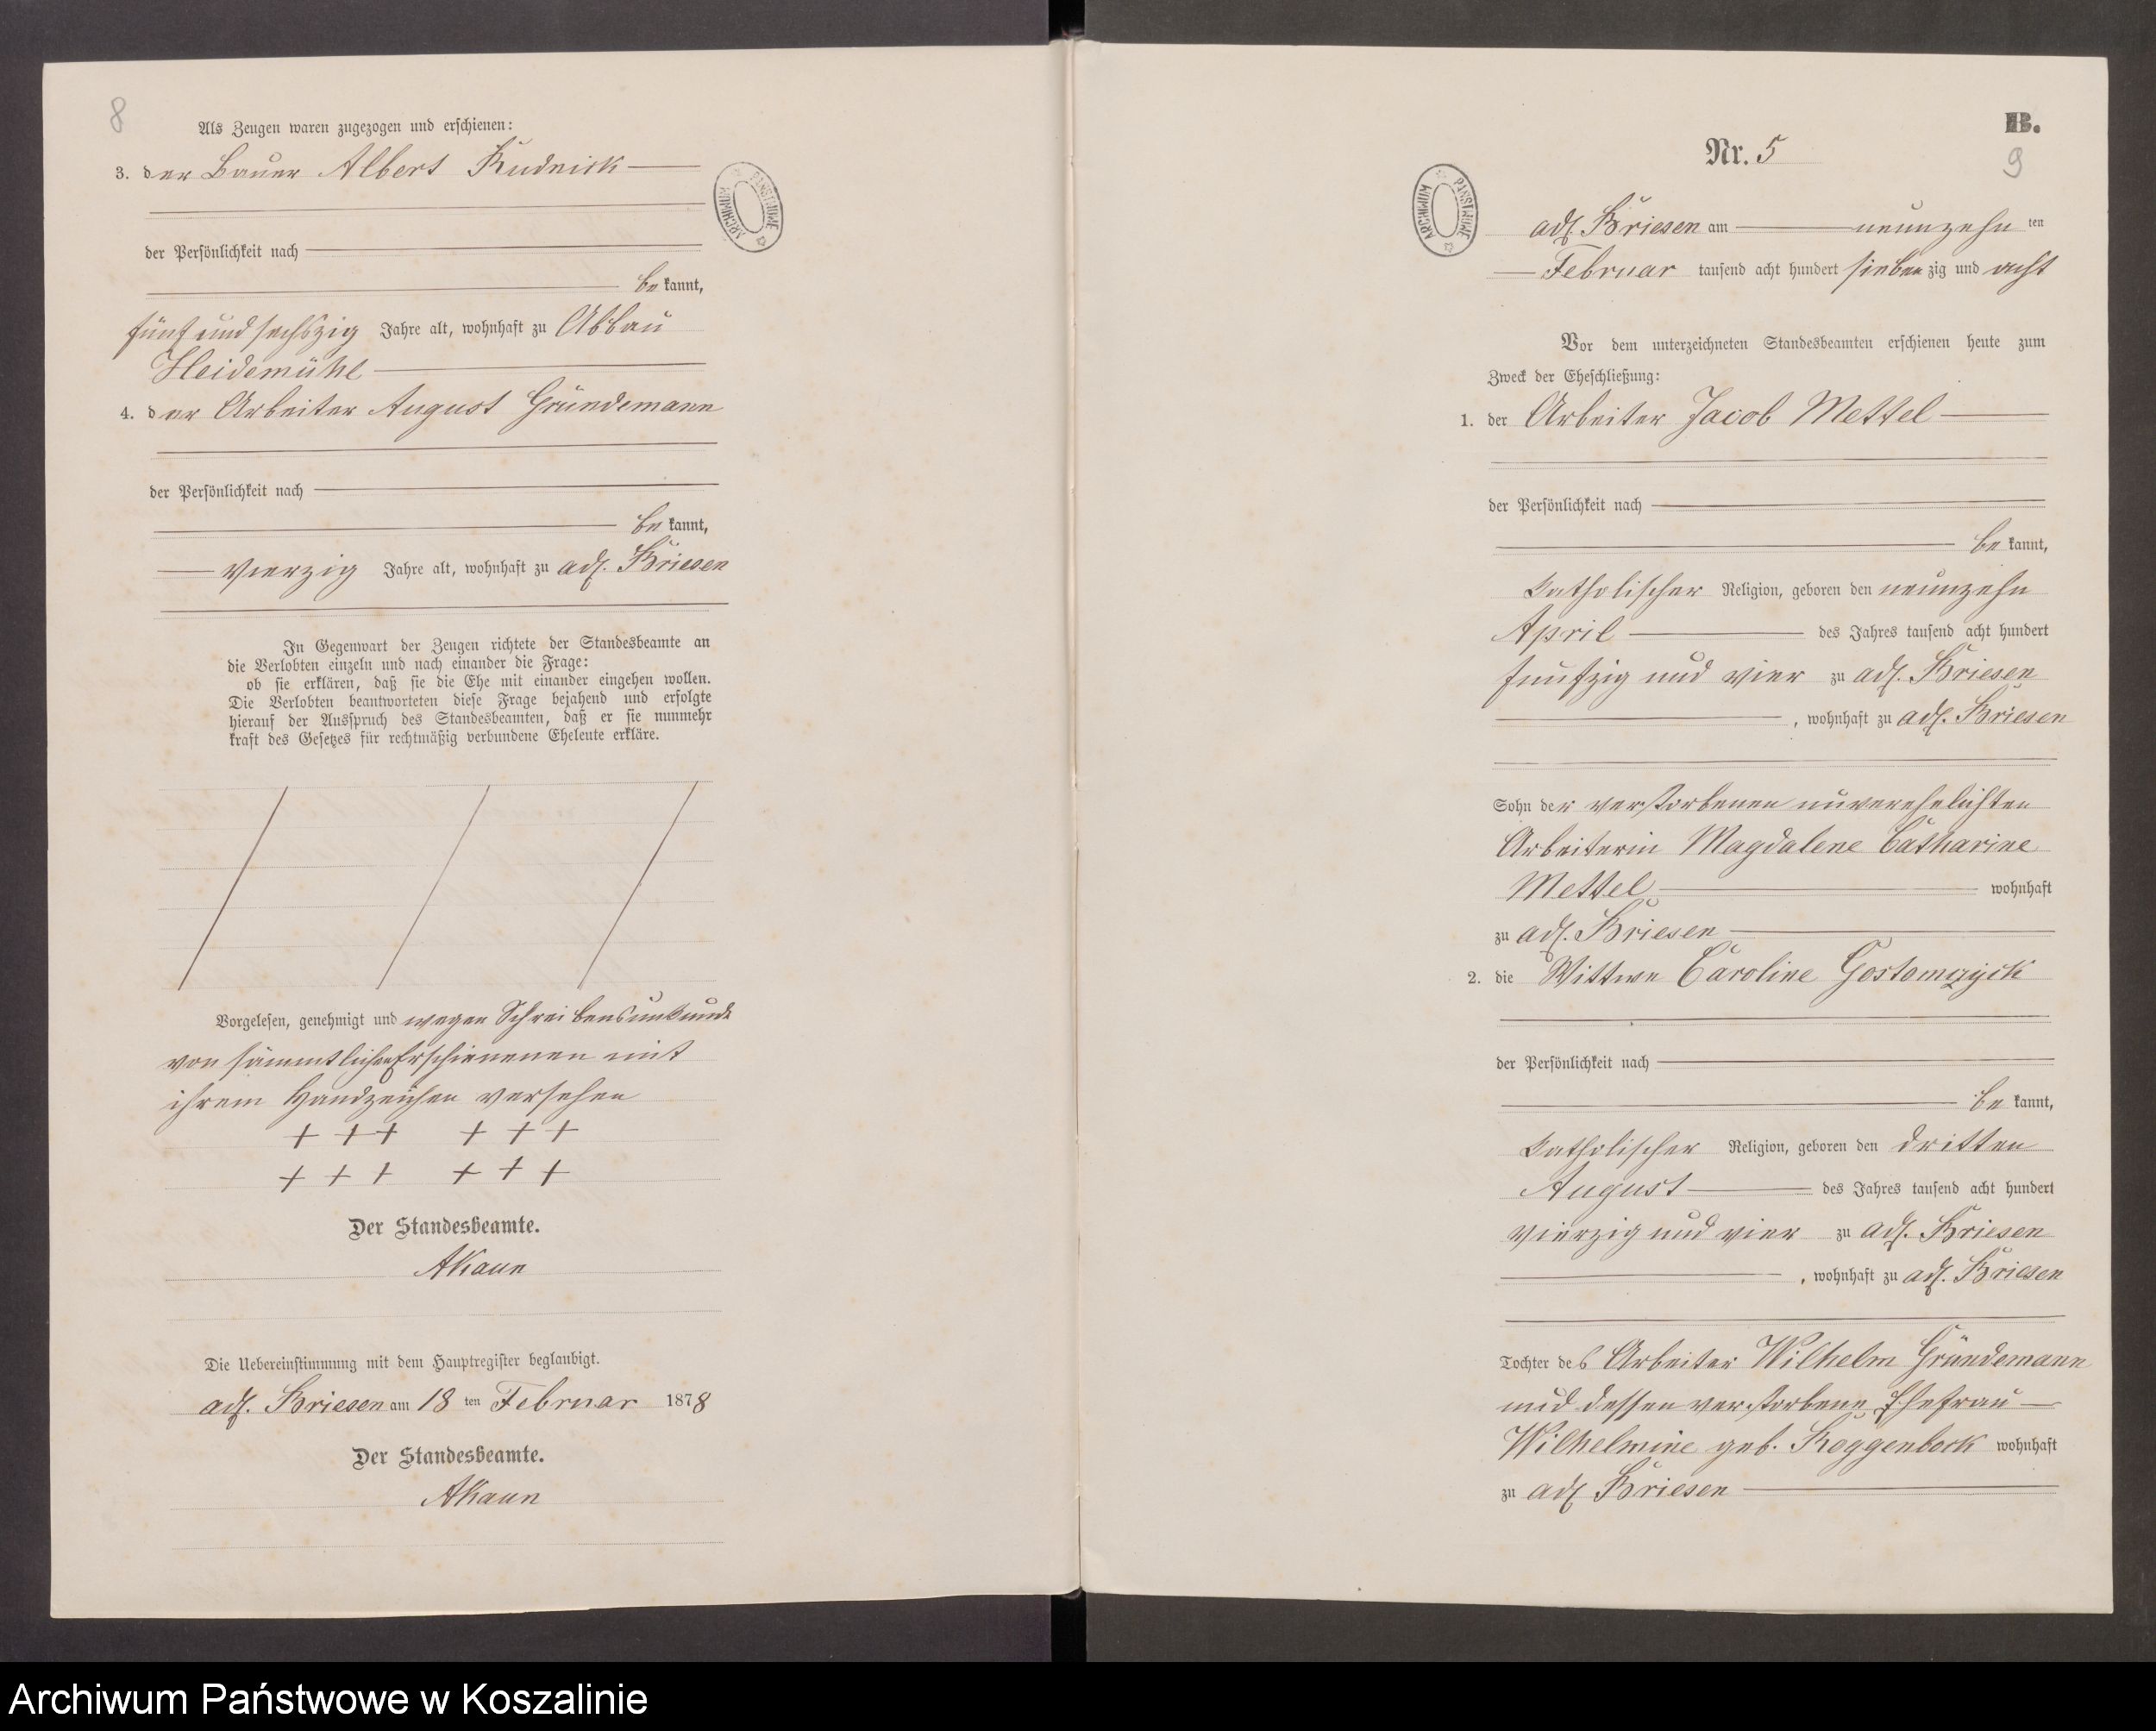 8
Als Zeugen waren zugezogen und erschienen:
3. der Bauer Albert Rudnick
der Persönlichkeit nach
bekannt,
fünf und sechszig Jahre alt, wohnhaft zu Abbau
Heidemühl
4. der Arbeiter August Gründemann
der Persönlichkeit nach
bekannt,
vierzig Jahre alt, wohnhaft zu adl. Briesen
In Gegenwart der Zeugen richtete der Standesbeamte an
die Verlobten einzeln und nach einander die Frage:
ob sie erklären, daß sie die Ehe mit einander eingehen wollen.
Die Verlobten beantworteten diese Frage bejahend und erfolgte
hierauf der Ausspruch des Standesbeamten, daß er sie nunmehr
kraft des Gesetzes für rechtmäßig verbundene Eheleute erkläre.
Vorgelesen, genehmigt und wegen Schreibensunkunde
von sämmtlichen Erschienenen mit
ihrem Handzeichen versehen
+ + + + + +
+ + + + + +
Der Standesbeamte.
AKaun
Die Uebereinstimmung mit dem Hauptregister beglaubigt.
adl. Briesen am 18 ten Februar 1878
Der Standesbeamte.
AKaun
ARCHIWUM PAŃSTWOWE
B.
Nr. 5
9
ARCHIWUM PAŃSTWOWE
adl. Briesen am neunzehn ten
Februar tausend acht hundert siebenzig und acht
Vor dem unterzeichneten Standesbeamten erschienen heute zum
Zweck der Eheschließung:
1. der Arbeiter Jacob Mettel
der Persönlichkeit nach
bekannt,
katholischer Religion, geboren den neunzehn
April des Jahres tausend acht hundert
funfzig und vier zu adl. Briesen
, wohnhaft zu adl. Briesen
Sohn der verstorbenen unverehelichten
Arbeiterin Magdalene Catharine
Mettel wohnhaft
zu adl. Briesen
2. die Wittwe Caroline Gostomzyck
der Persönlichkeit nach
bekannt,
katholischer Religion, geboren den dritten
August des Jahres tausend acht hundert
vierzig und vier zu adl. Briesen
, wohnhaft zu adl. Briesen
Tochter des Arbeiter Wilhelm Gründemann
und dessen verstorbene Ehefrau
Wilhelmine geb. Roggenbock wohnhaft
zu adl Briesen
Archiwum Państwowe w Koszalinie